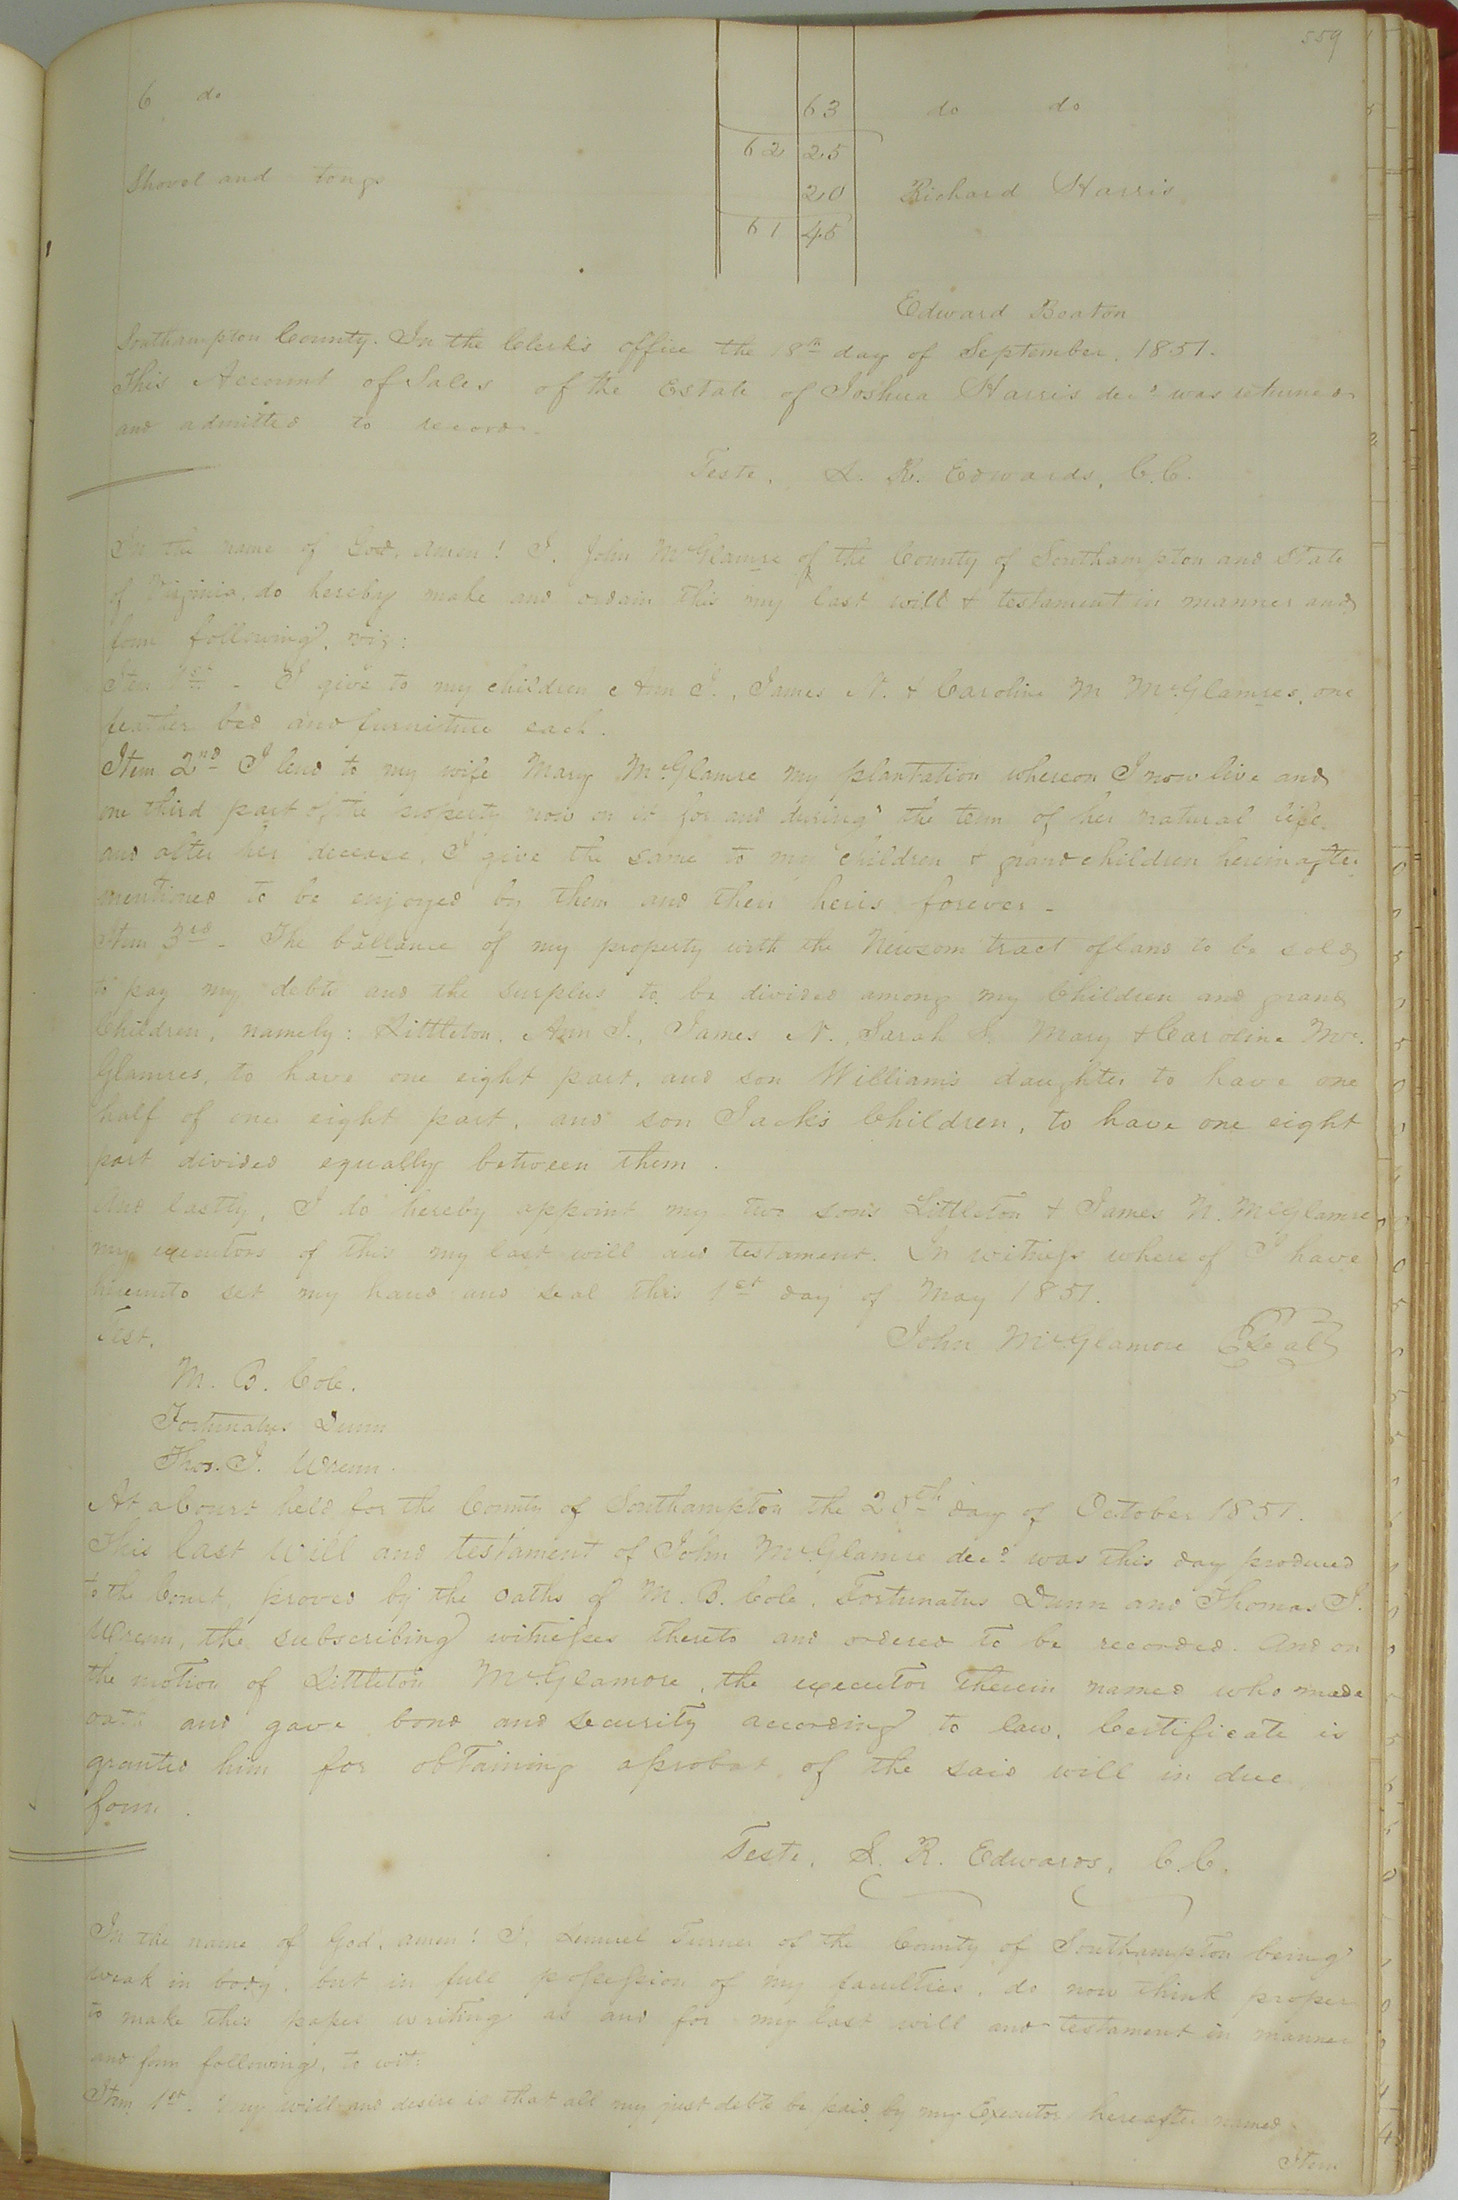 559
6 do 63 do do
62 25
Shovel and tongs 20 Richard Harris
61 45
Edward Beaton
Southampton County. In the Clerk's office the 18th day of September, 1851.
This Account of Sales of the Estate of Joshua Harris decd was returned
and admitted to record.
Teste, L. R. Edwards, C.C.
In the name of God, Amen! I, John McGlamre of the County of Southampton and State
of Virginia, do hereby make and ordain this my last will & testament in manner and
form following, viz:
Item 1st - I give to my children Ann J., James N. & Caroline M McGlamres, one
feather bed and furniture each.
Item 2nd I lend to my wife Mary McGlamre my plantation whereon I now live and
one third part of the property now on it for and during the term of her natural life,
and after her decease, I give the same to my children & grandchildren hereinafter
mentioned to be enjoyed by them and their heirs forever -
Item 3rd - The ballance of my property with the Newsom tract of land to be sold
to pay my debts and the surplus to be divided among my Children and grand
Children, namely: Littleton, Ann J., James N., Sarah S. Mary & Caroline Mc.
Glamres, to have one eight part, and son William's daughter to have one
half of one eight part, and son Jack's Children, to have one eight
part divided equally between them.
And lastly, I do hereby appoint my two sons Littleton & James N. McGlamre
my executors of this my last will and testament. In witness whereof I have
hereunto set my hand and seal this 1st day of May 1851.
Test. John McGlamore Seal
M. B. Cole.
Fortunatus Dunn
Thos. J. Wrenn.
At a Court held for the County of Southampton the 20th day of October 1851.
This last Will and testament of John McGlamre decd was this day produced
to the Court, proved by the oaths of M. B. Cole, Fortunatus Dunn and Thomas J.
Wrenn, the subscribing witnesses thereto and ordered to be recorded. And on
the motion of Littleton McGlamore, the executor therein named who made
oath and gave bond and security according to law, Certificate is
granted him for obtaining aprobat of the said will in due
form.
Teste, L. R. Edwards, C.C.
In the name of God, amen! I, Lemuel Turner of the County of Southampton being
weak in body, but in full possession of my faculties, do now think proper
to make this paper writing as and for my last will and testament in manner
and form following, to wit:
Item 1st. My will and desire is that all my just debts be paid by my Executor hereafter named
Item